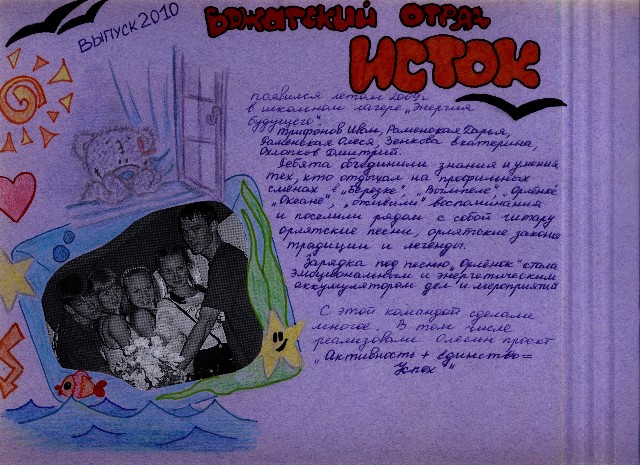 ВЫПУСК 2010
Вожатский отряд
ИСТОК
появился летом 2009г.
в школьном лагере „Энергия
будущего".
Трифонов Иван, Раменская Дария,
Раменская Олеся, Зенкова Екатерина,
Охлопков Дмитрий.
Ребята объединили знания и умения
тех, кто отдыхал на профильных
сменах в „Березке", „Вымпеле", „Орлёнке",
„Океане", „оживили" воспоминания
и поселили рядом с собой гитару
орлятские песни, орлятские законы
традиции и легенды.
Зарядка под песню „Орлёнок" стала
эмоциональным и энергетическим
аккумулятором дел и мероприятий
С этой командой сделали
многое. В том числе
реализовали Олесин проект
„Активность + единство =
Успех"